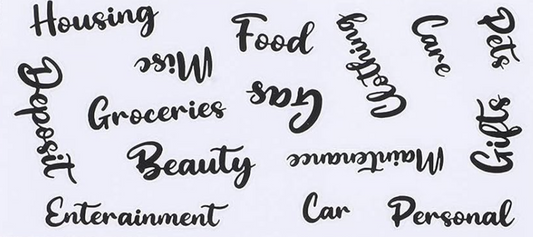 Housing
Food
Clothing
Care
Pets
Misc
Deposit
Groceries
Gas
Gifts
Beauty
Maintenance
Enterainment
Car
Personal